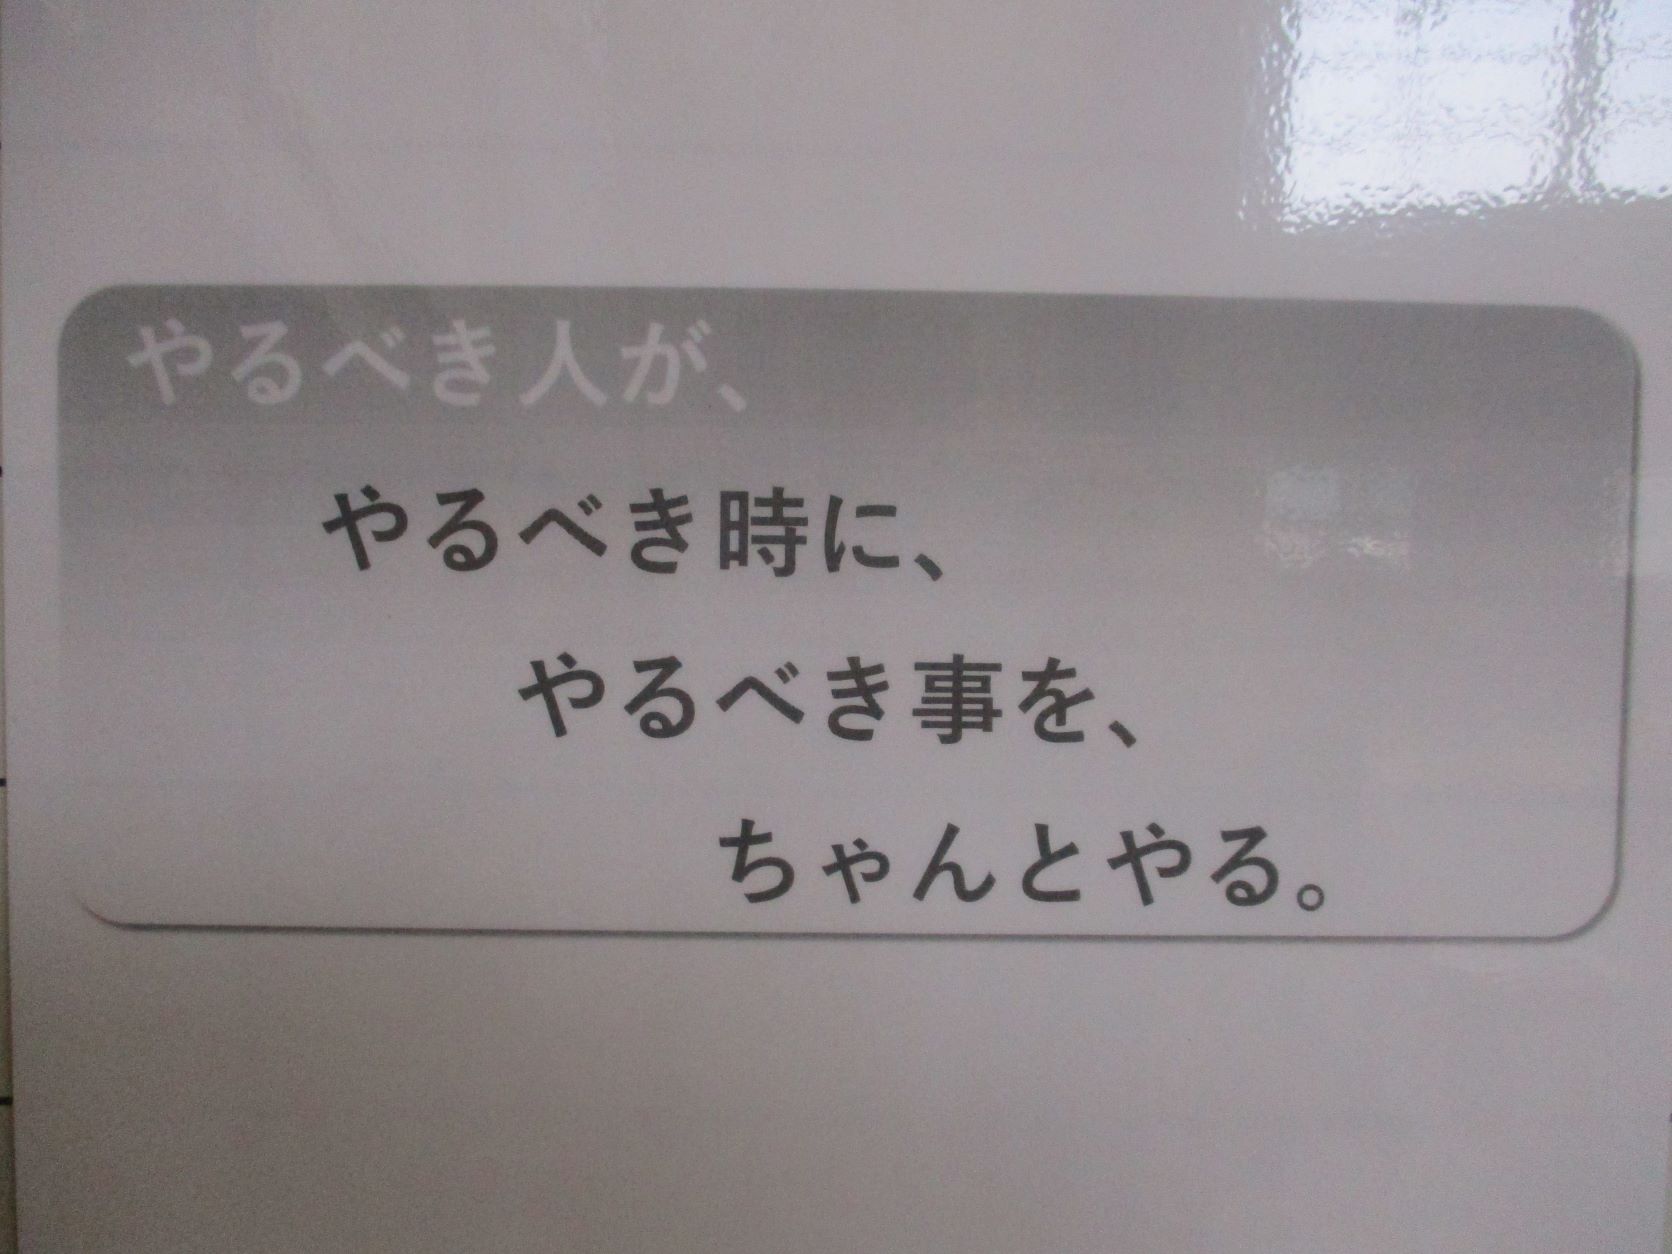 やるべき人が、
やるべき時に、
やるべき事を、
ちゃんとやる。